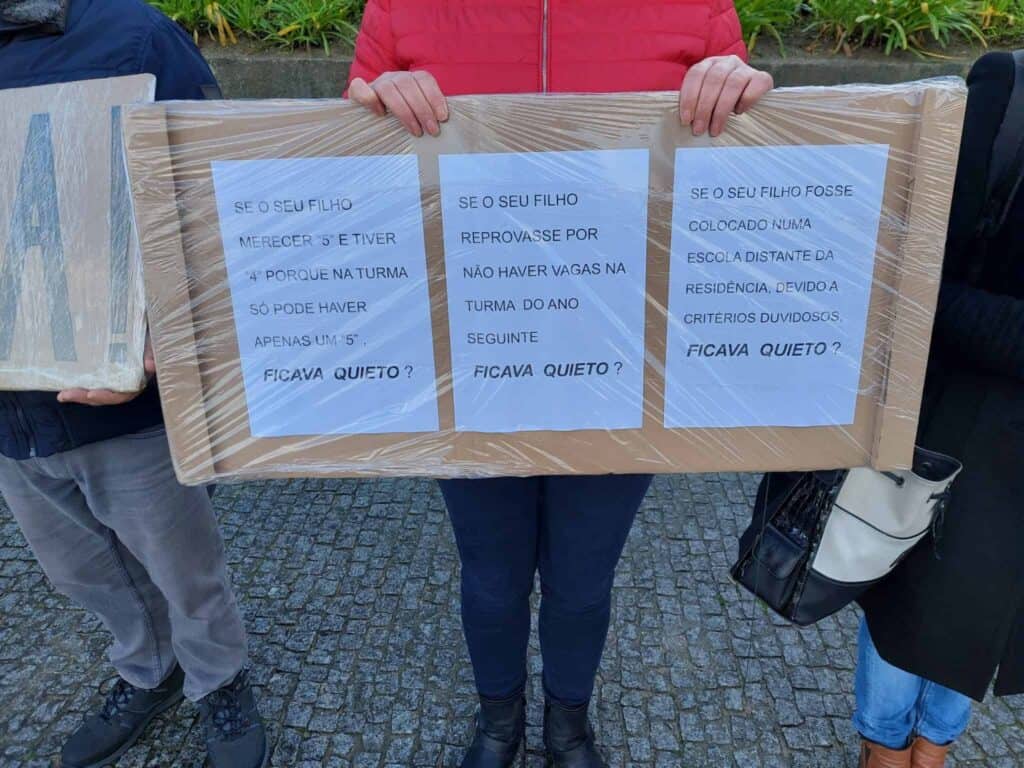 A!
SE O SEU FILHO
MERECER "5" E TIVER
"4" PORQUE NA TURMA
SÓ PODE HAVER
APENAS UM "5" ,
FICAVA QUIETO ?
SE O SEU FILHO
REPROVASSE POR
NÃO HAVER VAGAS NA
TURMA DO ANO
SEGUINTE
FICAVA QUIETO ?
SE O SEU FILHO FOSSE
COLOCADO NUMA
ESCOLA DISTANTE DA
RESIDÊNCIA, DEVIDO A
CRITÉRIOS DUVIDOSOS,
FICAVA QUIETO ?